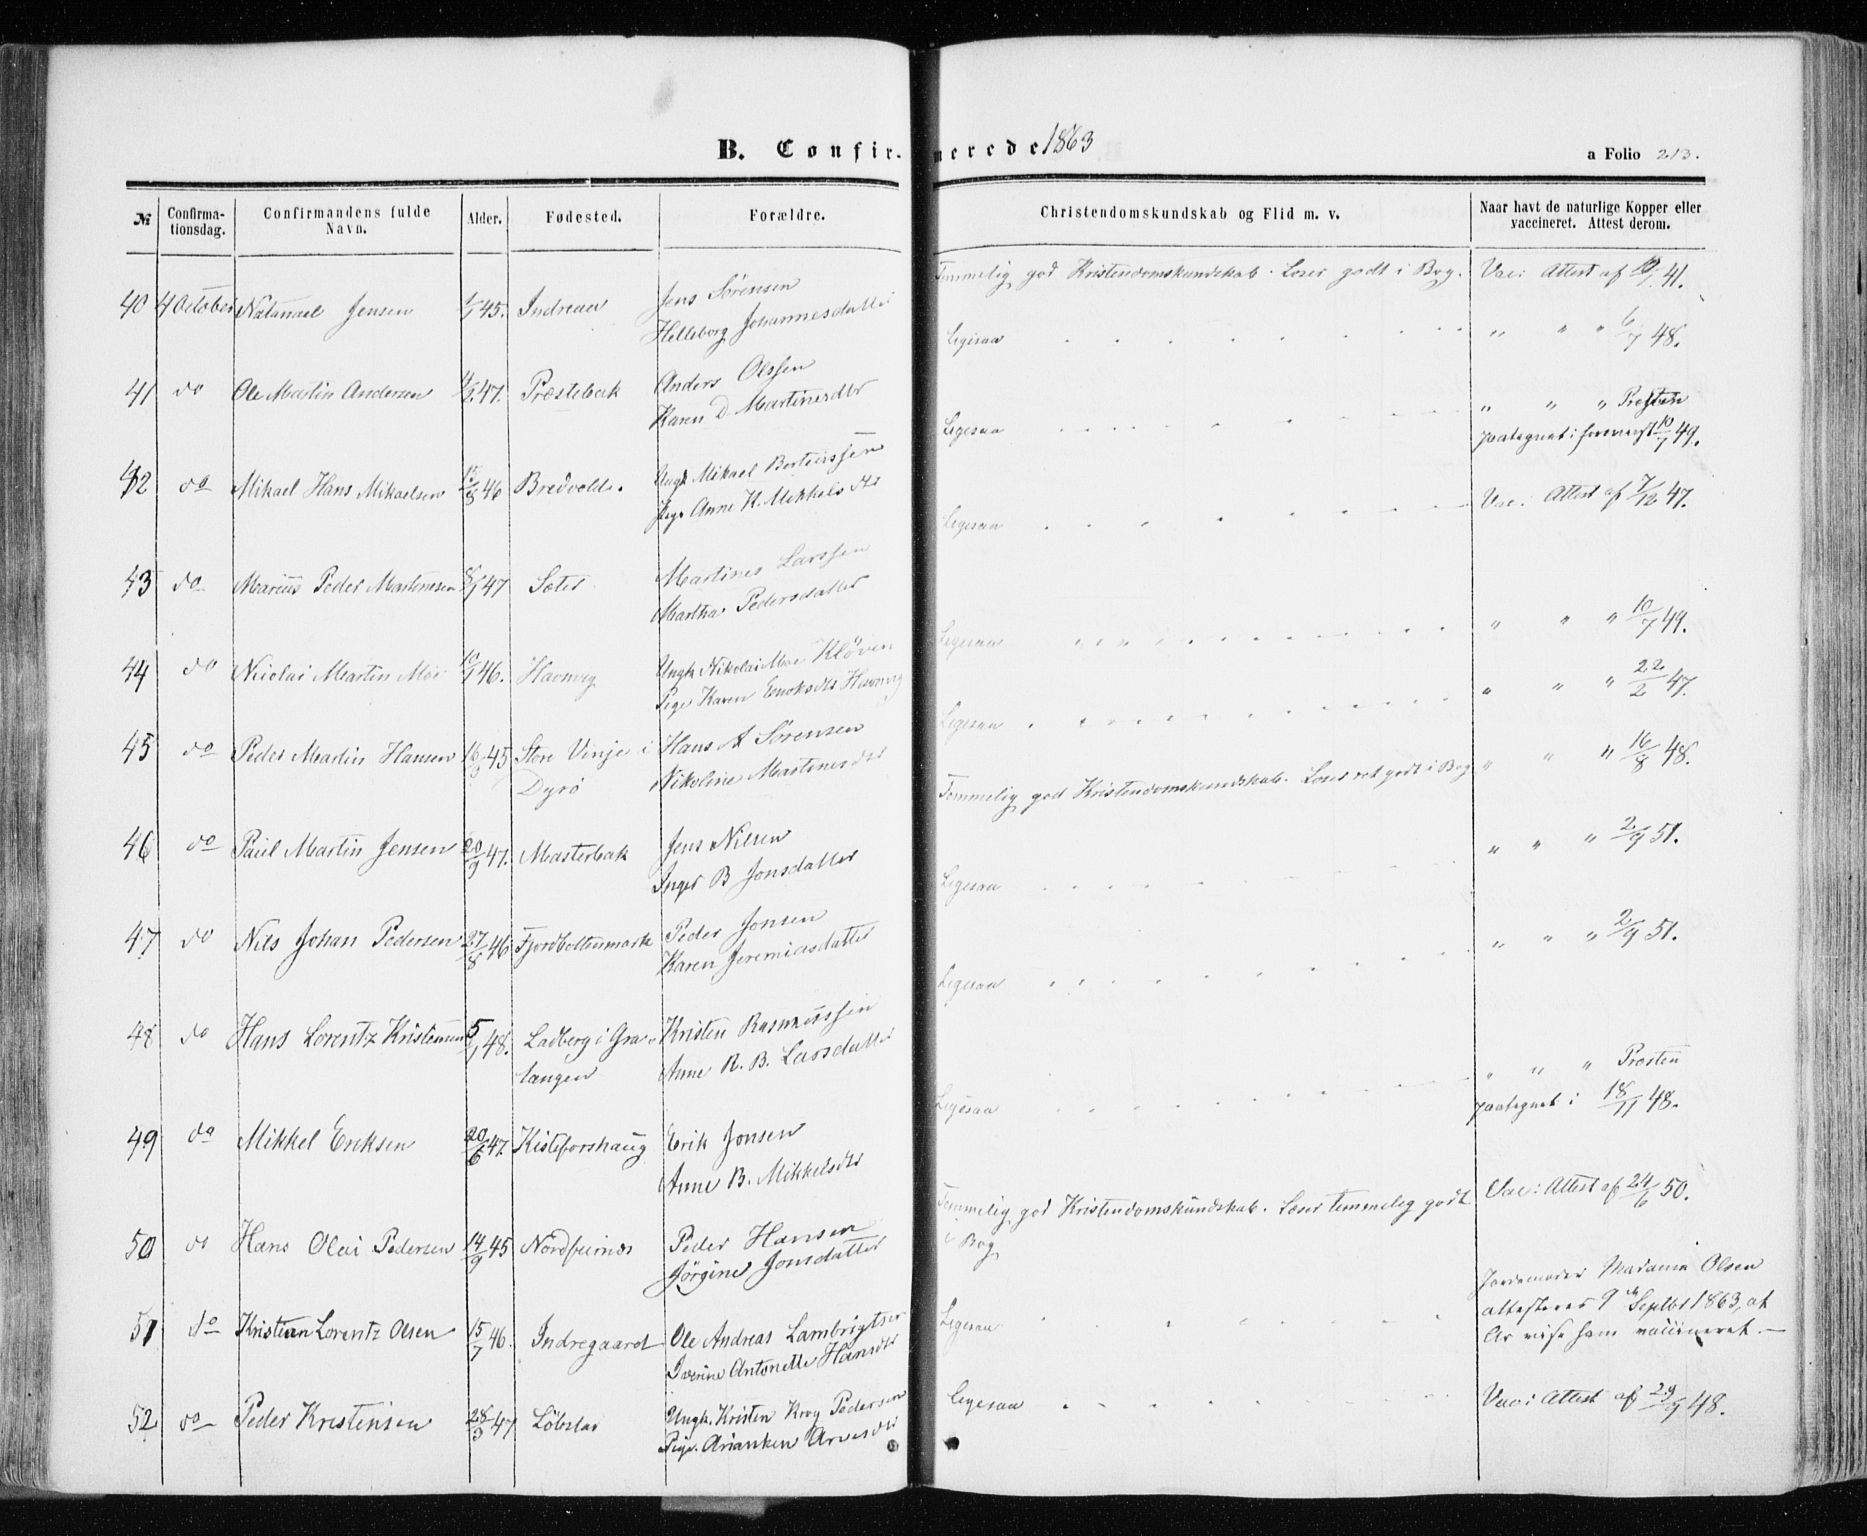 B. Confirmerede 1863
a Folio 213.
№ Confirmationsdag. Confirmandens fulde Navn. Alder. Fødested. Forældre. Christendomskundskab og Flid m. v. Naar havt de naturlige Kopper eller vaccineret. Attest derom.
40 4 October Natanael Jensen 45. Indreaa Jens Sørensen Temmelig god Kristendomskundskab. Læser godt i Bog. Vac: Attest af 41.
Helleborg Johannesdatter
41 do Ole Martin Andersen 47. Præstebak Anders Olssen Ligesaa " " " 6/7 48.
Karen D Martinesdtr
42 do Mikael Hans Mikaelsen 15/8 46 Bredvold. Ungk Mikael Berteussen Ligesaa " " " Præsten
Pige Anne K. Mikkelsdtr paategnet i 10/7 49.
43 do Marius Peder Martinesen 47 Sæter Martines Larssen Ligesaa Vac: Attest af 7/12 47.
Martha Pedersdatter
44 do Nicolai Martin Moe 46. Havnvig Ungk Nikolai Moe Kløven Ligesaa " " " 10/7 49.
Pige Karen Enoksdtr Havnvig
45 do Peder Martin Hansen 16/3 45 Store Vinje i Hans A Sørensen Ligesaa " " " 22/2 47.
Dyrø Nikoline Martinesdtr
46 do Paul Martin Jensen 20/9 47. Masterbak Jens Nilsen Temmelig god Kristendomskundskab. Læser ret godt i Bog " " " 16/8 48.
Inger B Jonsdatter
47 do Nils Johan Pedersen 27/8 46 Fjordbottenmark Peder Jonsen Ligesaa " " " 2/9 51.
Karen Jeremiasdatter
48 do Hans Lorentz Kristensen 5/1 48. Ladberg i Gra- Kristen Rasmussen Ligesaa " " " 2/9 51.
tangen Anne R. B. Larsdatter
49 do Mikkel Eriksen 20/6 47. Kisteforshaug Erik Jonsen Ligesaa " " " Præsten
Anne B. Mikkelsdtr paategnet i 18/11 48.
50 do Hans Olai Pedersen 14/9 45 Nordfurnæs Peder Hansen Temmelig god Kristendomskundskab. Læser temmelig godt Vac: Attest af 24/6 50.
Jørgine Jonsdatter i Bog
51 do Kristian Lorentz Olsen 15/7 46. Indregaard Ole Andreas Lambrigtsen Ligesaa Jordemoder Madame Olsen
Iverine Antonette Hansdtr attesterer 9de Septbr 1863, at
Ar vise ham vaccineret.
52 do Peder Kristensen 28/3 47 Løbstad Ungk. Kristen Krog Pedersen Ligesaa Vac: Attest af 29/9 48.
Pige Arianken Arnesdtr